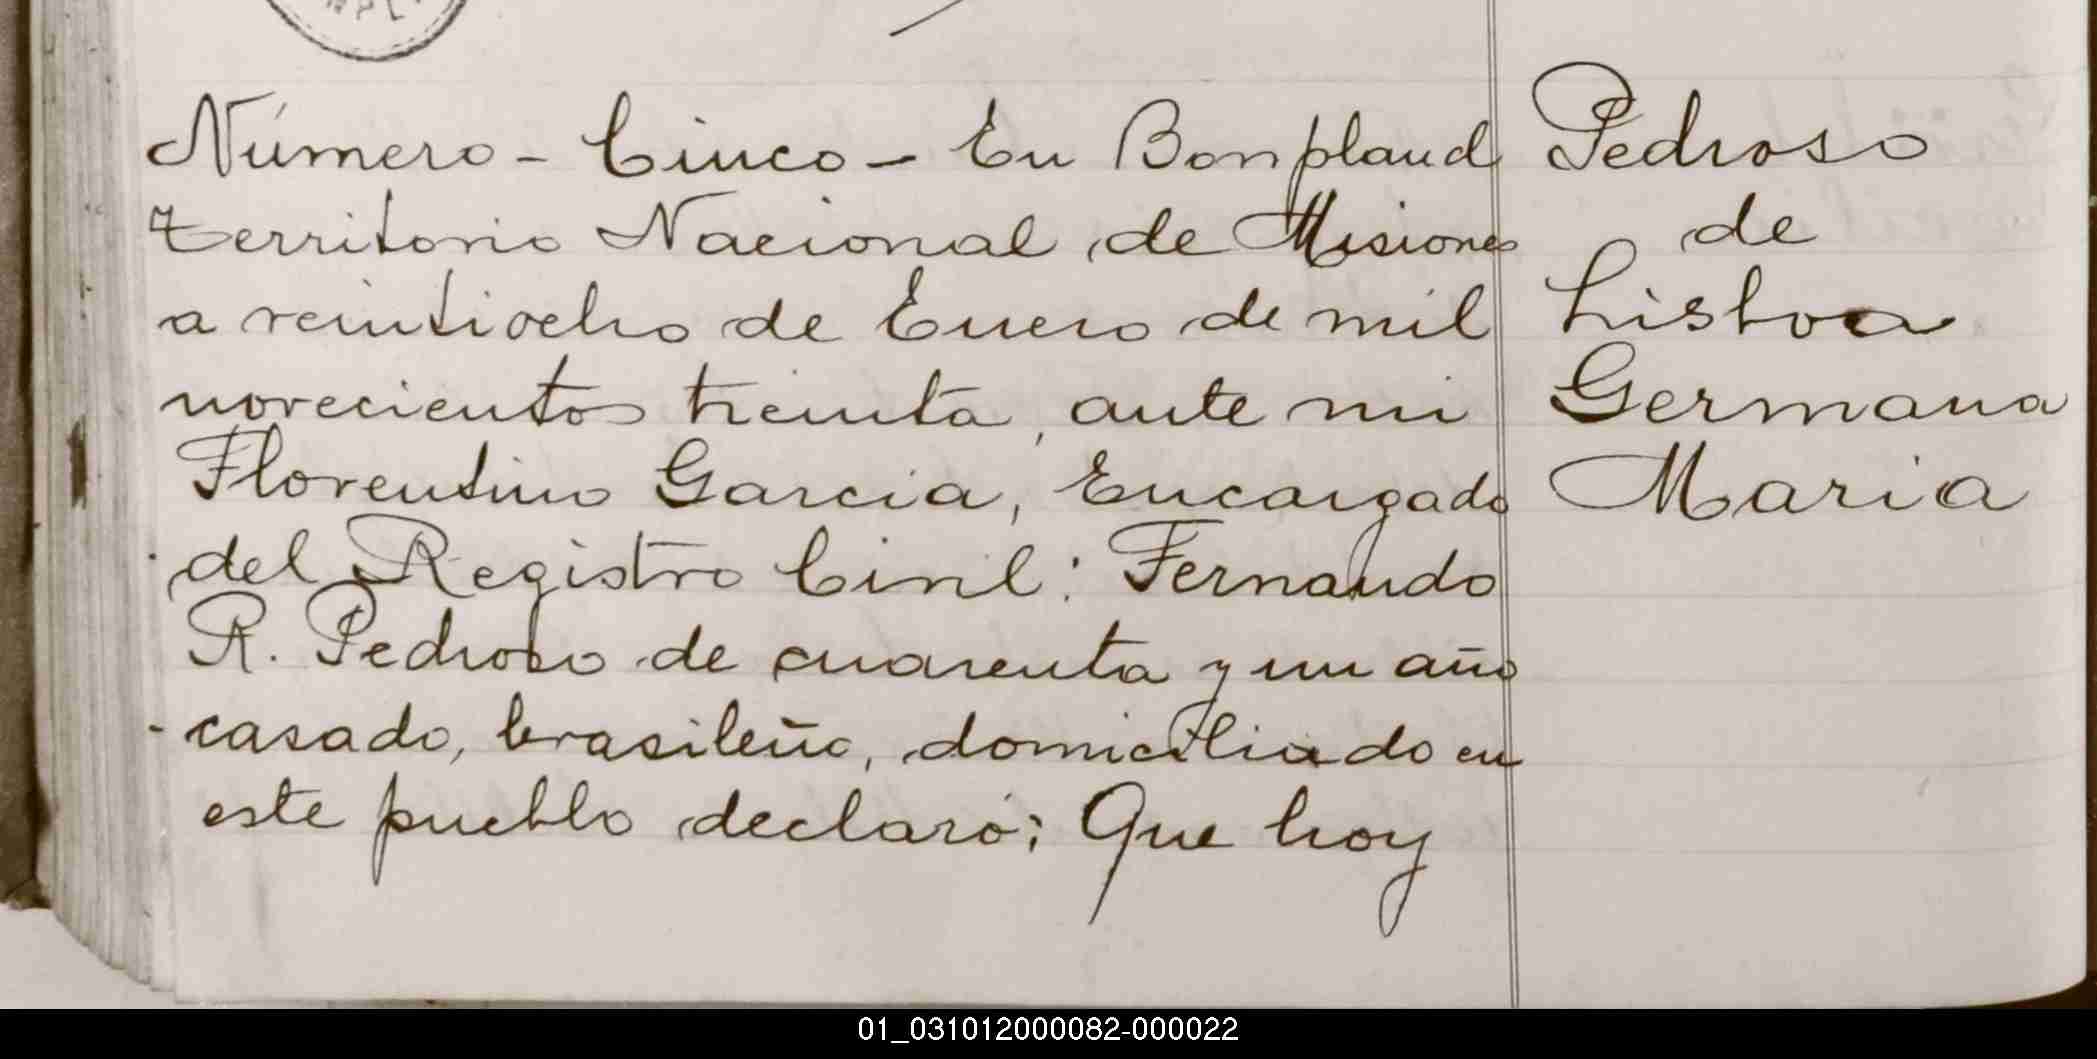 Número - Cinco - En Bonpland
territorio Nacional de Misiones
a veintiocho de Enero de mil
novecientos treinta, ante mi
Florentino Garcia, Encargado
del Registro Civil: Fernando
R. Pedroso de cuarenta y un año
casado, brasileño, domiciliado en
este pueblo declaró; Que hoy
Pedroso
de
Lisboa
Germana
Maria
01_031012000082-000022